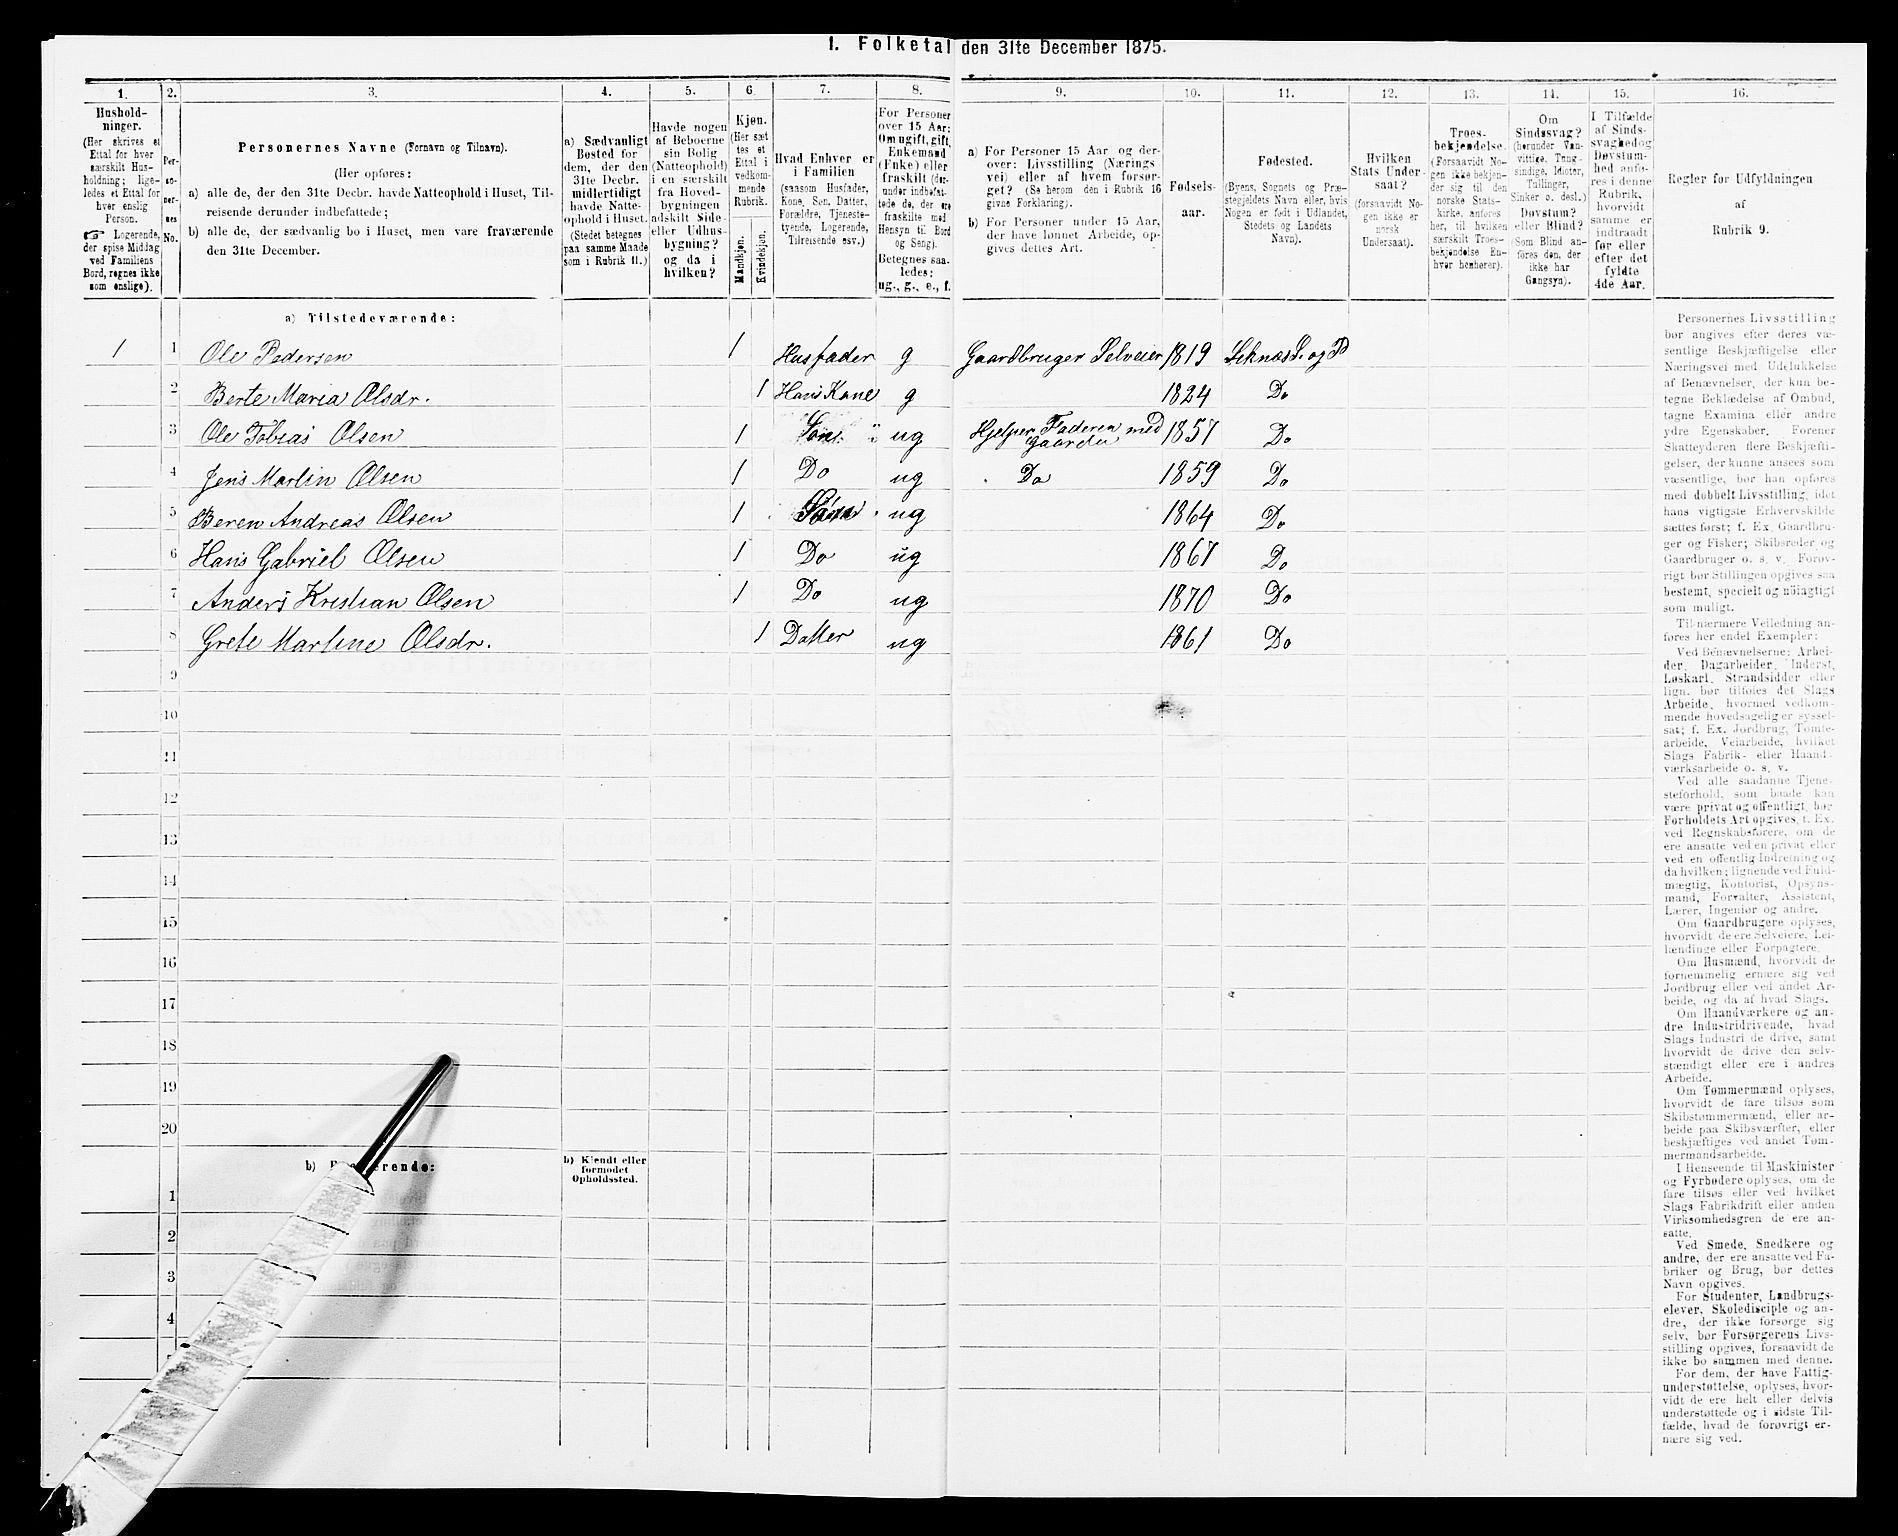 1. Folketal den 31te December 1875.
1. 2. 3. 4. 5. 6. 7. 8. 9. 10. 11. 12. 13. 14. 15. 16.
Hushold-
ninger.
(Her skrives et
Ettal for hver
særskilt Hus-
holdning; lige-
ledes et Ettal for
hver enslig
Person.
Logerende,
der spise Middag
ved Familiens
Bord, regnes ikke
som enslige).
Per-
so-
ner-
nes
No.
Personernes Navne (Fornavn og Tilnavn).
(Her opføres:
a) alle de, der den 31te Decbr. havde Natteophold i Huset, Til-
reisende derunder indbefattede;
b) alle de, der sædvanlig bo i Huset, men vare fraværende
den 31te December.
a) Sædvanligt
Bosted for
dem, der den
31te Decbr.
midlertidigt
havde Natte-
ophold i Huset.
(Stedet betegnes
paa samme Maade
som i Rubrik 11.)
Havde nogen
af Beboerne
sin Bolig
(Natteophold)
i en særskilt
fra Hoved-
bygningen
adskilt Side-
eller Udhus-
bygning?
og da i
hvilken?
Kjøn.
(Her sæt
tes et
Ettal i
vedkom-
mende
Rubrik.
Mandkjøn.
Kvindekjøn.
Hvad Enhver er
i Familien
(saasom Husfader,
Kone, Søn, Datter,
Forældre, Tjeneste-
tyende, Logerende,
Tilreisende osv.)
For Personer
over 15 Aar:
Om ugift, gift,
Enkemand
(Enke) eller
fraskilt (der-
under indbefat-
tede de, der ere
fraskilte med
Hensyn til Bord
og Seng).
Betegnes saa-
ledes:
ug., g., e., f.
a) For Personer 15 Aar og der-
over: Livsstilling (Nærings
vei) eller af hvem forsør-
get? (Se herom den i Rubrik 16
givne Forklaring).
b) For Personer under 15 Aar,
der have lønnet Arbeide, op-
gives dettes Art.
Fødsels-
aar.
Fødested.
(Byens, Sognets og Præ-
stegjeldets Navn eller, hvis
Nogen er født i Udlandet,
Stedets og Landets
Navn).
Hvilken
Stats Under-
saat?
(forsaavidt No-
gen ikke er
norsk
Undersaat).
Troes-
bekjendelse.
(Forsaavidt No-
gen ikke bekjen-
der sig til den
norske Stats-
kirke, anføres
her, til hvilken
særskilt Troes-
bekjendelse En-
hver henhører).
Om
Sindssvag?
(herunder Van-
vittige, Tung-
sindige, Idioter,
Tullinger,
Sinker o. desl.)
Døvstum?
eller Blind?
(Som Blind an-
føres den, der
ikke har
Gangsyn).
I Tilfælde
af Sinds-
svaghed og
Døvstum-
hed anfø-
res i denne
Rubrik,
hvorvidt
samme er
indtraadt
før eller
efter det
fyldte
4de Aar.
Regler for Udfyldningen
af
Rubrik 9.
a) Tilstedeværende:
1 1 Ole Pedersen 1 Husfader g Gaardbruger Selveier 1819 Leknæs S. og P
2 Berte Maria Olsdr. 1 Hans Kone g 1824 Do
3 Ole Tobias Olsen 1 Søn ug Hjelper Faderen med Gaarden 1857 Do
4 Jens Martin Olsen 1 Do ug Do 1859 Do
5 Beren Andreas Olsen 1 Søn ug 1864 Do
6 Hans Gabriel Olsen 1 Do ug 1867 Do
7 Anders Kristian Olsen 1 Do ug 1870 Do
8 Grete Martine Olsdr. 1 Datter ug 1861 Do
9
10
11
12
13
14
15
16
17
18
19
20
b) b) Kjendt eller
formodet
Opholdssted.
1
2
3
4
Personernes Livsstilling
bør angives efter deres væ-
sentlige Beskjæftigelse eller
Næringsvei med Udelukkelse
af Benævnelser, der kun be-
tegne Beklædelse af Ombud,
tagne Examina eller andre
ydre Egenskaber. Forener
Skatteyderen flere Beskjæfti-
gelser, der kunne ansees som
væsentlige, bør han opføres
med dobbelt Livsstilling, idet
hans vigtigste Erhvervskilde
sættes først; f. Ex. Gaardbru-
ger og Fisker; Skibsreder og
Gaardbruger o. s. v. Forøv-
rigt bør Stillingen opgives saa
bestemt, specielt og nøiagtigt
som muligt.
Til nærmere Veiledning an-
føres her endel Exempler:
Ved Benævnelserne: Arbei-
der, Dagarbeider, Inderst,
Løskarl, Strandsidder eller
lign. bør tilføies det Slags
Arbeide, hvormed vedkom-
mende hovedsagelig er syssel-
sat; f. Ex. Jordbrug, Tomte-
arbeide, Veiarbeide, hvilket
Slags Fabrik- eller Haand-
værksarbeide o. s. v.
Ved alle saadanne Tjene-
steforhold, som baade kan
være privat og offentligt, bør
Forholdets Art opgives, f. Ex.
ved Regnskabsførere, om de
ere ansatte ved en privat eller
ved en offentlig Indretning og
da hvilken; lignende ved Fuld-
mægtig, Kontorist, Opsyns-
mand, Forvalter, Assistent,
Lærer, Ingeniør og andre.
Om Gaardbrugere oplyses,
hvorvidt de ere Selveiere, Lei-
lændinge eller Forpagtere.
Om Husmænd, hvorvidt de
fornemmelig ernære sig ved
Jordbrug eller ved andet Ar-
beide, og da af hvad Slags.
Om Haandværkere og an-
dre Industridrivende, hvad
Slags Industri de drive, samt
hvorvidt de drive den selv-
stændigt eller ere i andres
Arbeide.
Om Tømmermænd oplyses,
hvorvidt de fare tilsøs som
Skibstømmermænd, eller ar-
beide paa Skibsværfter, eller
beskjæftiges ved andet Tøm-
mermandsarbeide.
I Henseende til Maskinister
og Fyrbødere oplyses, om de
fare tilsøs eller ved hvilket
Slags Fabrikdrift eller anden
Virksomhedsgren de ere an-
satte.
Ved Smede, Snedkere og
andre, der ere ansatte ved Fa-
briker og Brug, bør dettes
Navn opgives.
For Studenter, Landbrugs-
elever, Skoledisciple og an-
dre, der ikke forsørge sig
selv, bør Forsørgerens Livs-
stilling opgives, forsaavidt de
ikke bo sammen med denne.
For dem, der have Fattig-
understøttelse, oplyses, hvor-
vidt de ere helt eller delvis
understøttede og i sidste Til-
fælde, hvad de forøvrigt er-
nære sig ved.